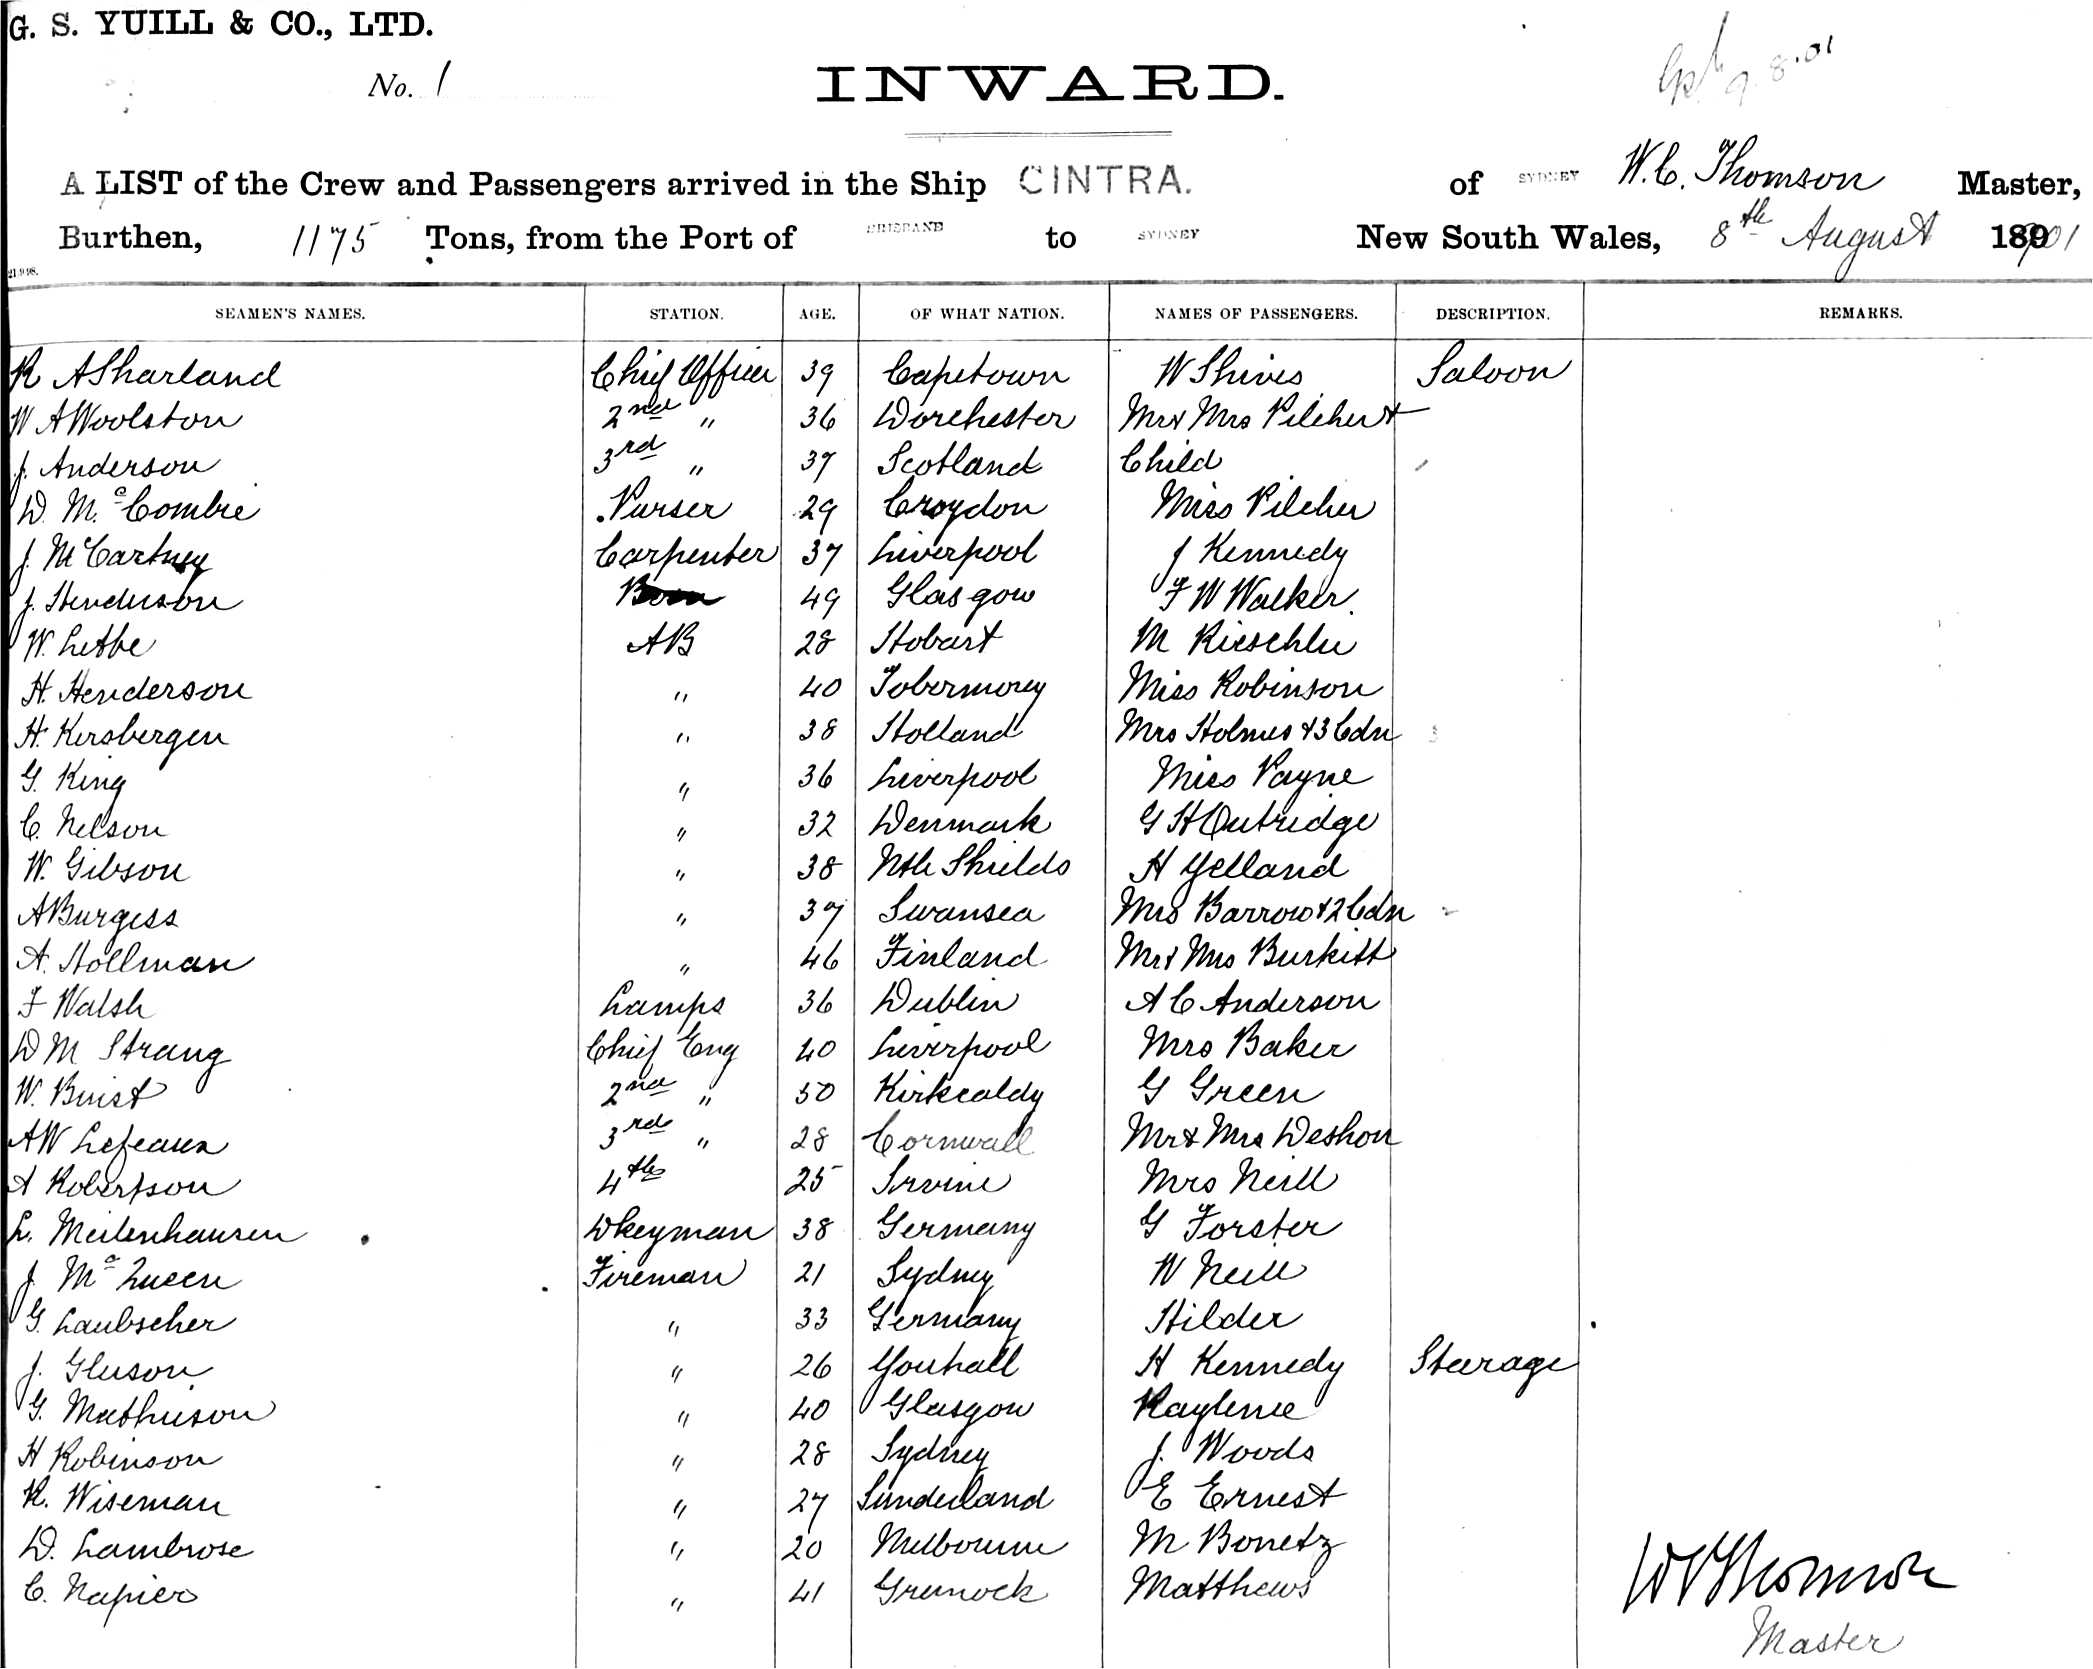 G. S. YUILL & CO., LTD.
No. 1
INWARD.
9.8.01
A LIST of the Crew and Passengers arrived in the Ship CINTRA. of SYDNEY W. C. Thomson Master,
Burthen, 1175 Tons, from the Port of BRISBANE to SYDNEY New South Wales, 8th August 1901
21.9.98.
SEAMEN'S NAMES. STATION. AGE. OF WHAT NATION. NAMES OF PASSENGERS. DESCRIPTION. REMARKS.
R A Sharland Chief Officer 39 Capetown W Shires Saloon
W A Woolston 2nd " 36 Dorchester Mr & Mrs Pilcher &
J. Anderson 3rd " 37 Scotland Child
D. Mc Combie Purser 29 Croydon Miss Pilcher
J. McCartney Carpenter 37 Liverpool J Kennedy
J. Henderson 49 Glasgow F W Walker
W. Letbe AB 28 Hobart M
H. Henderson " 40 Tobermorey Miss Robinson
H. Kersbergen " 38 Holland Mrs Holmes & 3 Cdn
G. King " 36 Liverpool Miss Payne
C. Nelson " 32 Denmark G H Outridge
W. Gibson " 38 Nth Shields H Yelland
A Burgess " 37 Swansea Mrs Barrow & 2 Cdn
A. Hollman " 46 Finland Mr & Mrs Burkitt
F Walsh Lamps 36 Dublin A C Anderson
D M Strang Chief Eng 40 Liverpool Mrs Baker
W. Buist 2nd " 50 Kirkcaldy G Green
A W Lefeaux 3rd " 28 Cornwall Mr & Mrs Deshon
A Robertson 4th 25 Irvine Mrs Neill
L. Meilenhausen Dkeyman 38 Germany G Forster
J. Mc Queen Fireman 21 Sydney W Neill
G. Laubscher " 33 Germany Hilder
J. Gleeson " 26 Youhall H Kennedy Steerage
G. Mathieson " 40 Glasgow
H Robinson " 28 Sydney J. Woods
R. Wiseman " 27 Sunderland E Ernest
D. Lambrose " 20 Melbourne M Bonetz
C. Napier " 41 Greenock Matthews
W C Thomson
Master